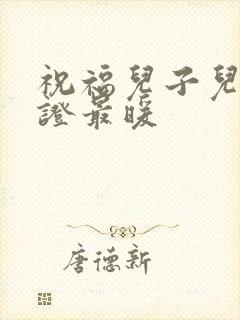 祝福兒子兒
證最暖
唐德新